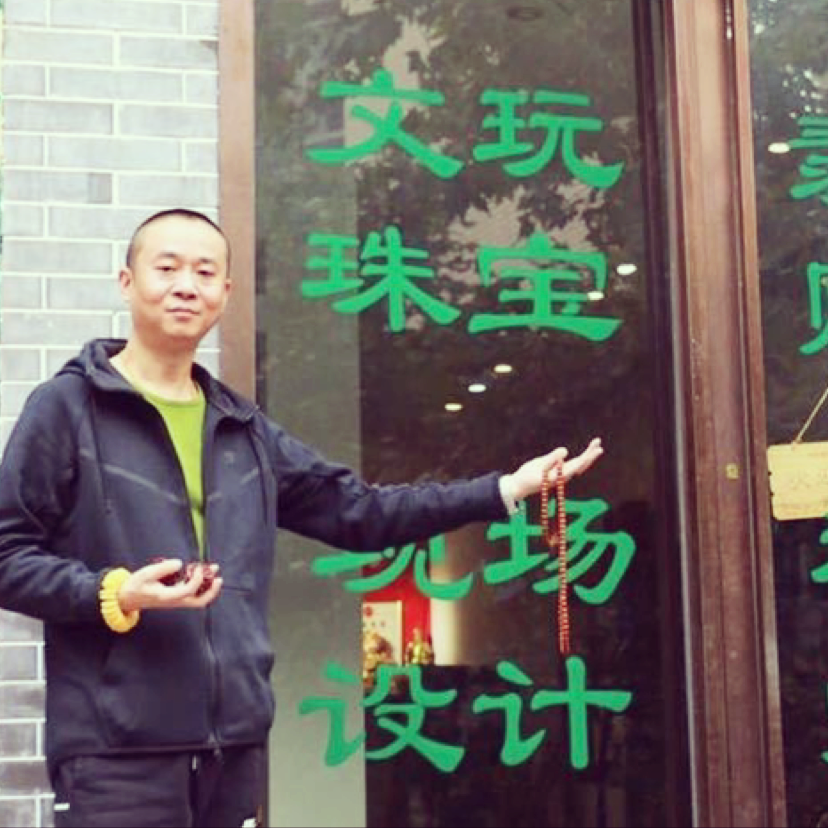 文玩
珠宝
现场
设计